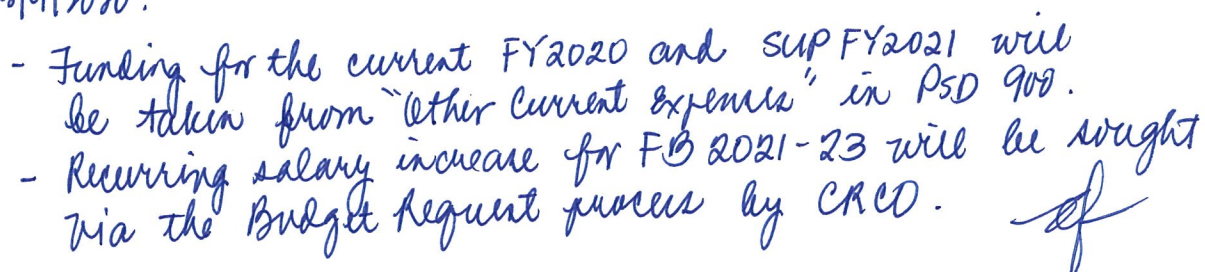 - Funding for the current FY2020 and SUP FY2021 will
be taken from "Other Current Expenses" in PSD 900.
- Recurring salary increase for FB 2021-23 will be sought
via the Budget Request process by CRCO.